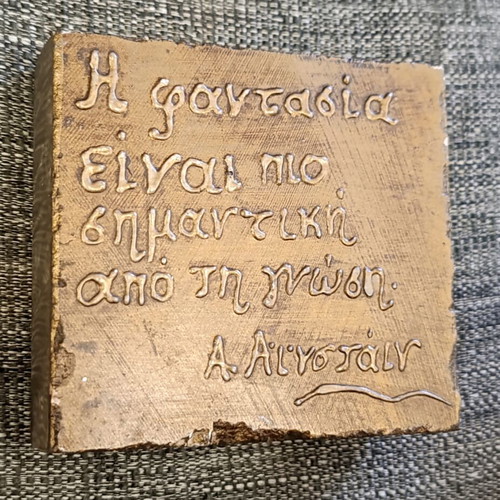 Η φαντασία
είναι πιο
σημαντική
από τη γνώση.
Α. Αϊνστάιν